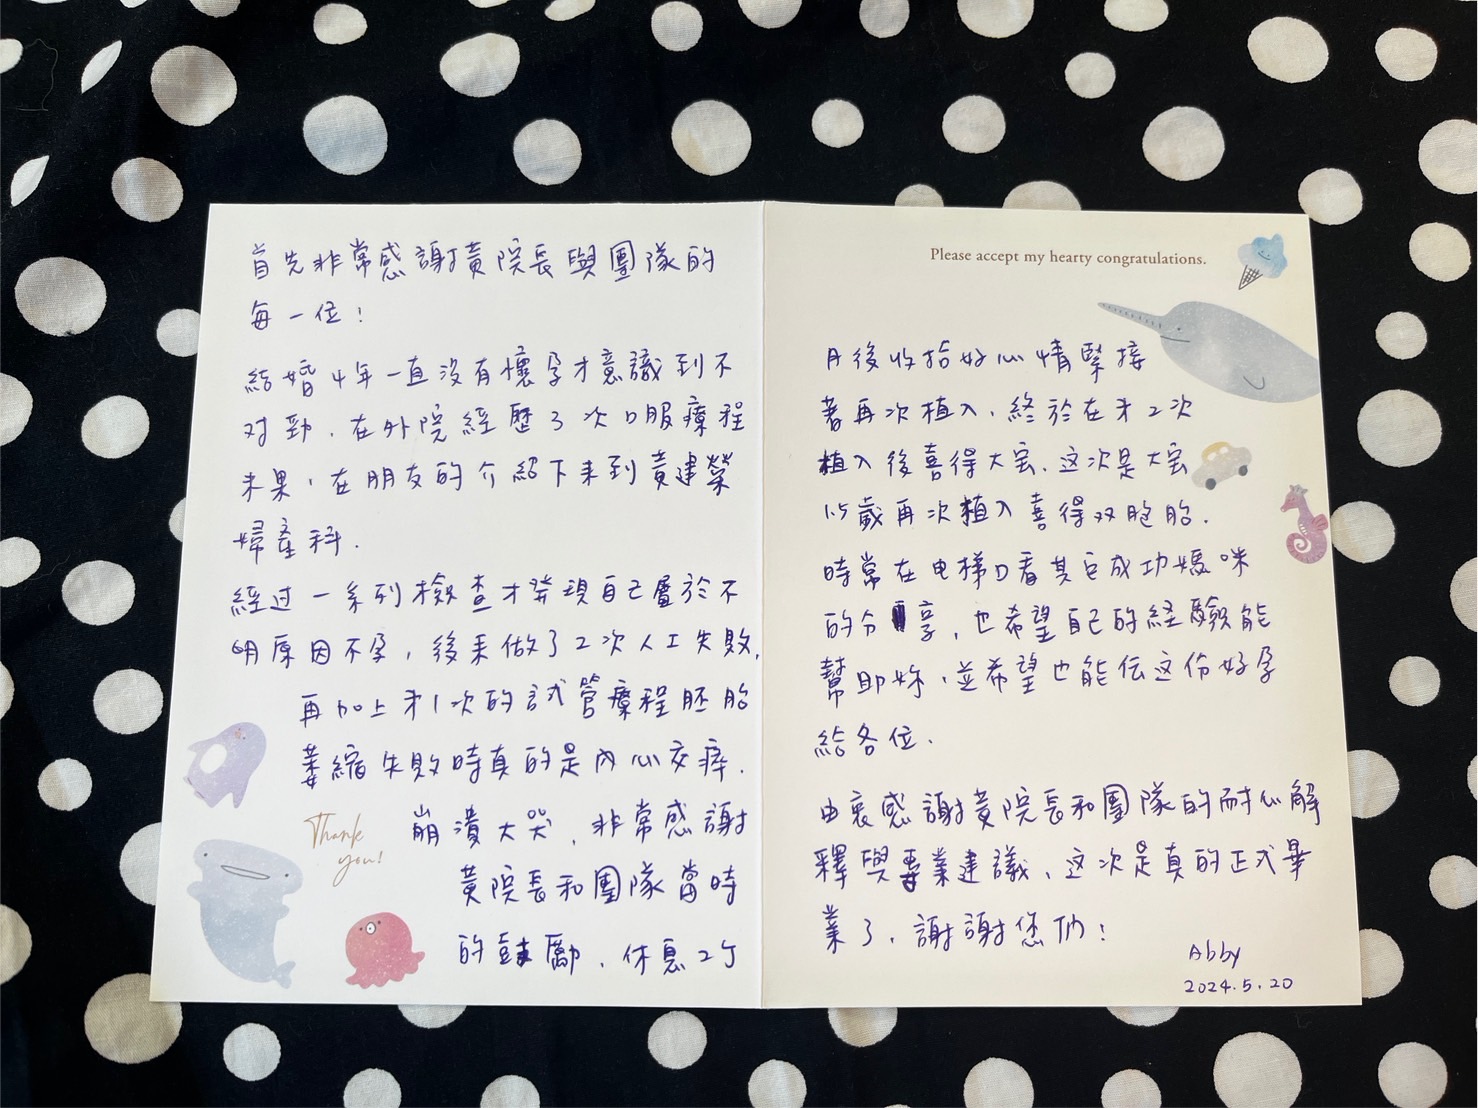 首先非常感謝黃院長與團隊的
每一位!
結婚4年一直沒有懷孕才意識到不
对勁,在外院經歷3次口服療程
未果,在朋友的介紹下来到黃建榮
婦產科.
經过一系列檢查才発現自己屬於不
明原因不孕,後来做了2次人工失敗,
再加上才1次的試管療程胚胎
萎縮失敗時真的是內心交瘁.
崩潰大哭,非常感謝
黃院長和團隊當時
的鼓勵,休息2个
Thank
you!
Please accept my hearty congratulations.
月後收拾好心情緊接
著再次植入,終於在才2次
植入後喜得大宝.这次是大宝
1.5歲再次植入喜得双胞胎.
時常在电梯口看其它成功媽咪
的分享,也希望自己的経驗能
幫助妳,並希望也能伝这份好孕
給各位.
由衷感謝黃院長和團隊的耐心解
釋與專業建議,这次是真的正式畢
業了,謝謝您们!
Abby
2024.5.20